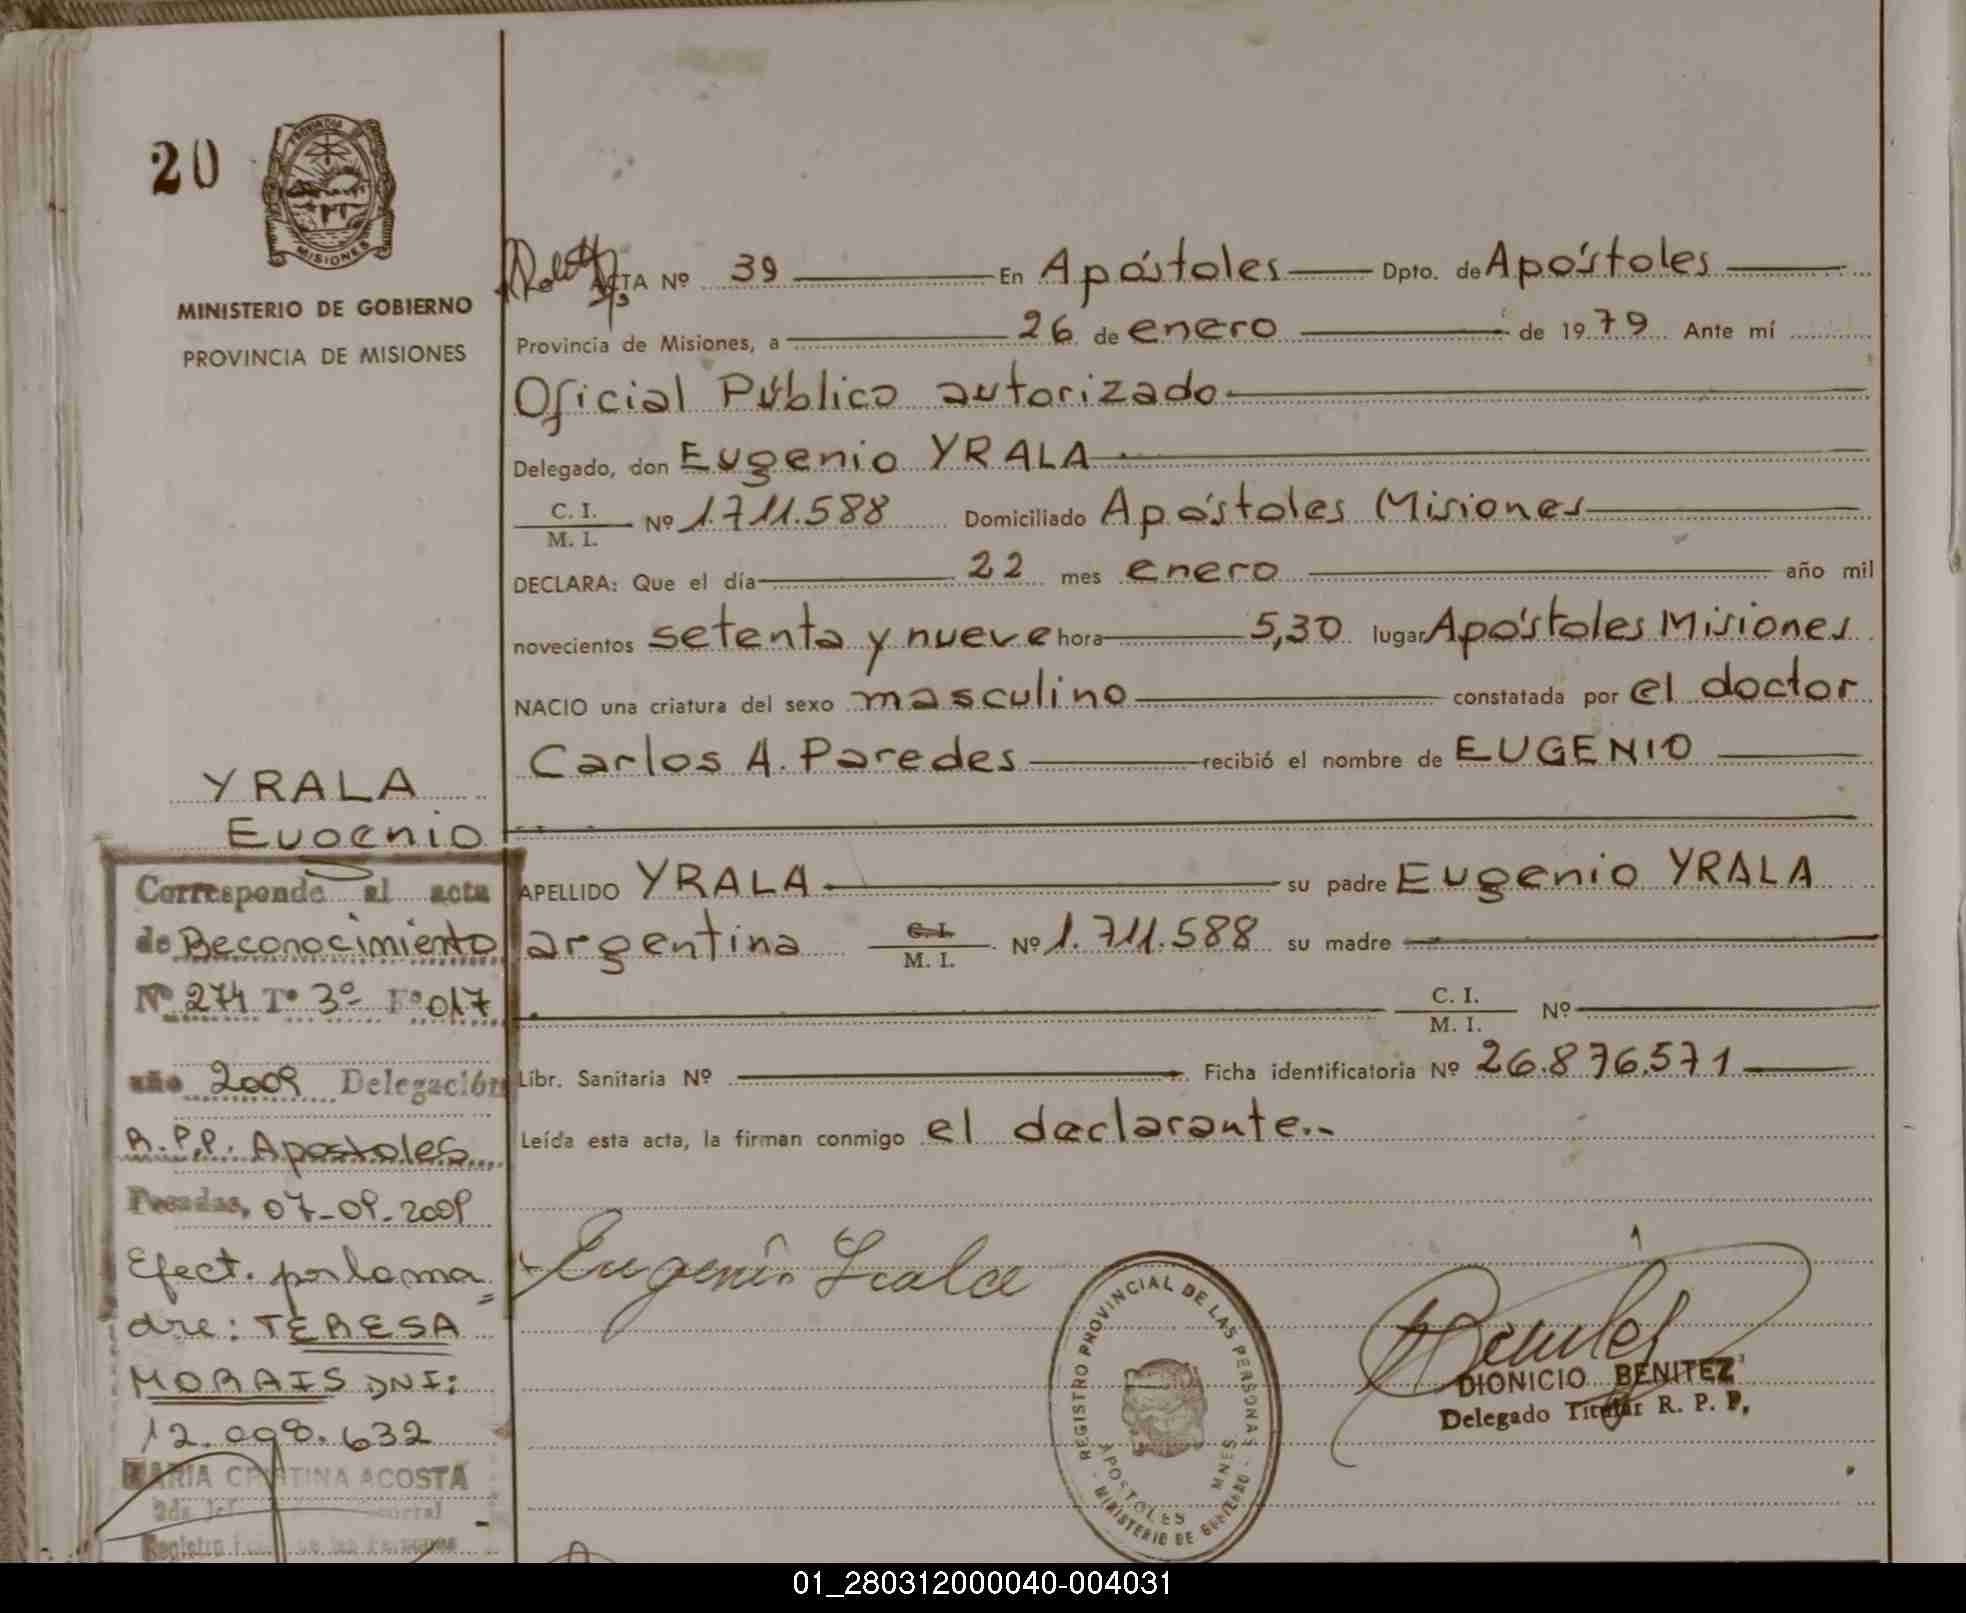 20
PROVINCIA DE
MISIONES
MINISTERIO DE GOBIERNO
PROVINCIA DE MISIONES
ACTA Nº 39 En Apóstoles Dpto. de Apóstoles
Provincia de Misiones, a 26 de enero de 1979 Ante mí
Oficial Público autorizado
Delegado, don Eugenio YRALA
C. I.
M. I. Nº 1.711.588 Domiciliado Apóstoles Misiones
DECLARA: Que el día 22 mes enero año mil
novecientos setenta y nueve hora 5,30 lugar Apóstoles Misiones
NACIO una criatura del sexo masculino constatada por el doctor
Carlos A. Paredes recibió el nombre de EUGENIO
APELLIDO YRALA su padre Eugenio YRALA
argentina C. I. M. I. Nº 1.711.588 su madre
C. I.
M. I. Nº
Libr. Sanitaria Nº Ficha identificatoria Nº 26.876.571
Leída esta acta, la firman conmigo el declarante.-
YRALA
Eugenio
Corresponde al acta
de Reconocimiento
Nº 274 Tº 3º Fº 017
año 2009 Delegación
R.P.P. Apostoles
Posadas, 07-09-2009
Efect. por la ma=
dre: TERESA
MORAIS DNI:
12.098.632
MARIA CRISTINA ACOSTA
Registro de las Personas
Eugenio Irala
REGISTRO PROVINCIAL DE LAS PERSONAS
- MINISTERIO DE GOBIERNO -
APOSTOLES MNES
Benitez
DIONICIO BENITEZ
Delegado Titular R. P. P.
01_280312000040-004031